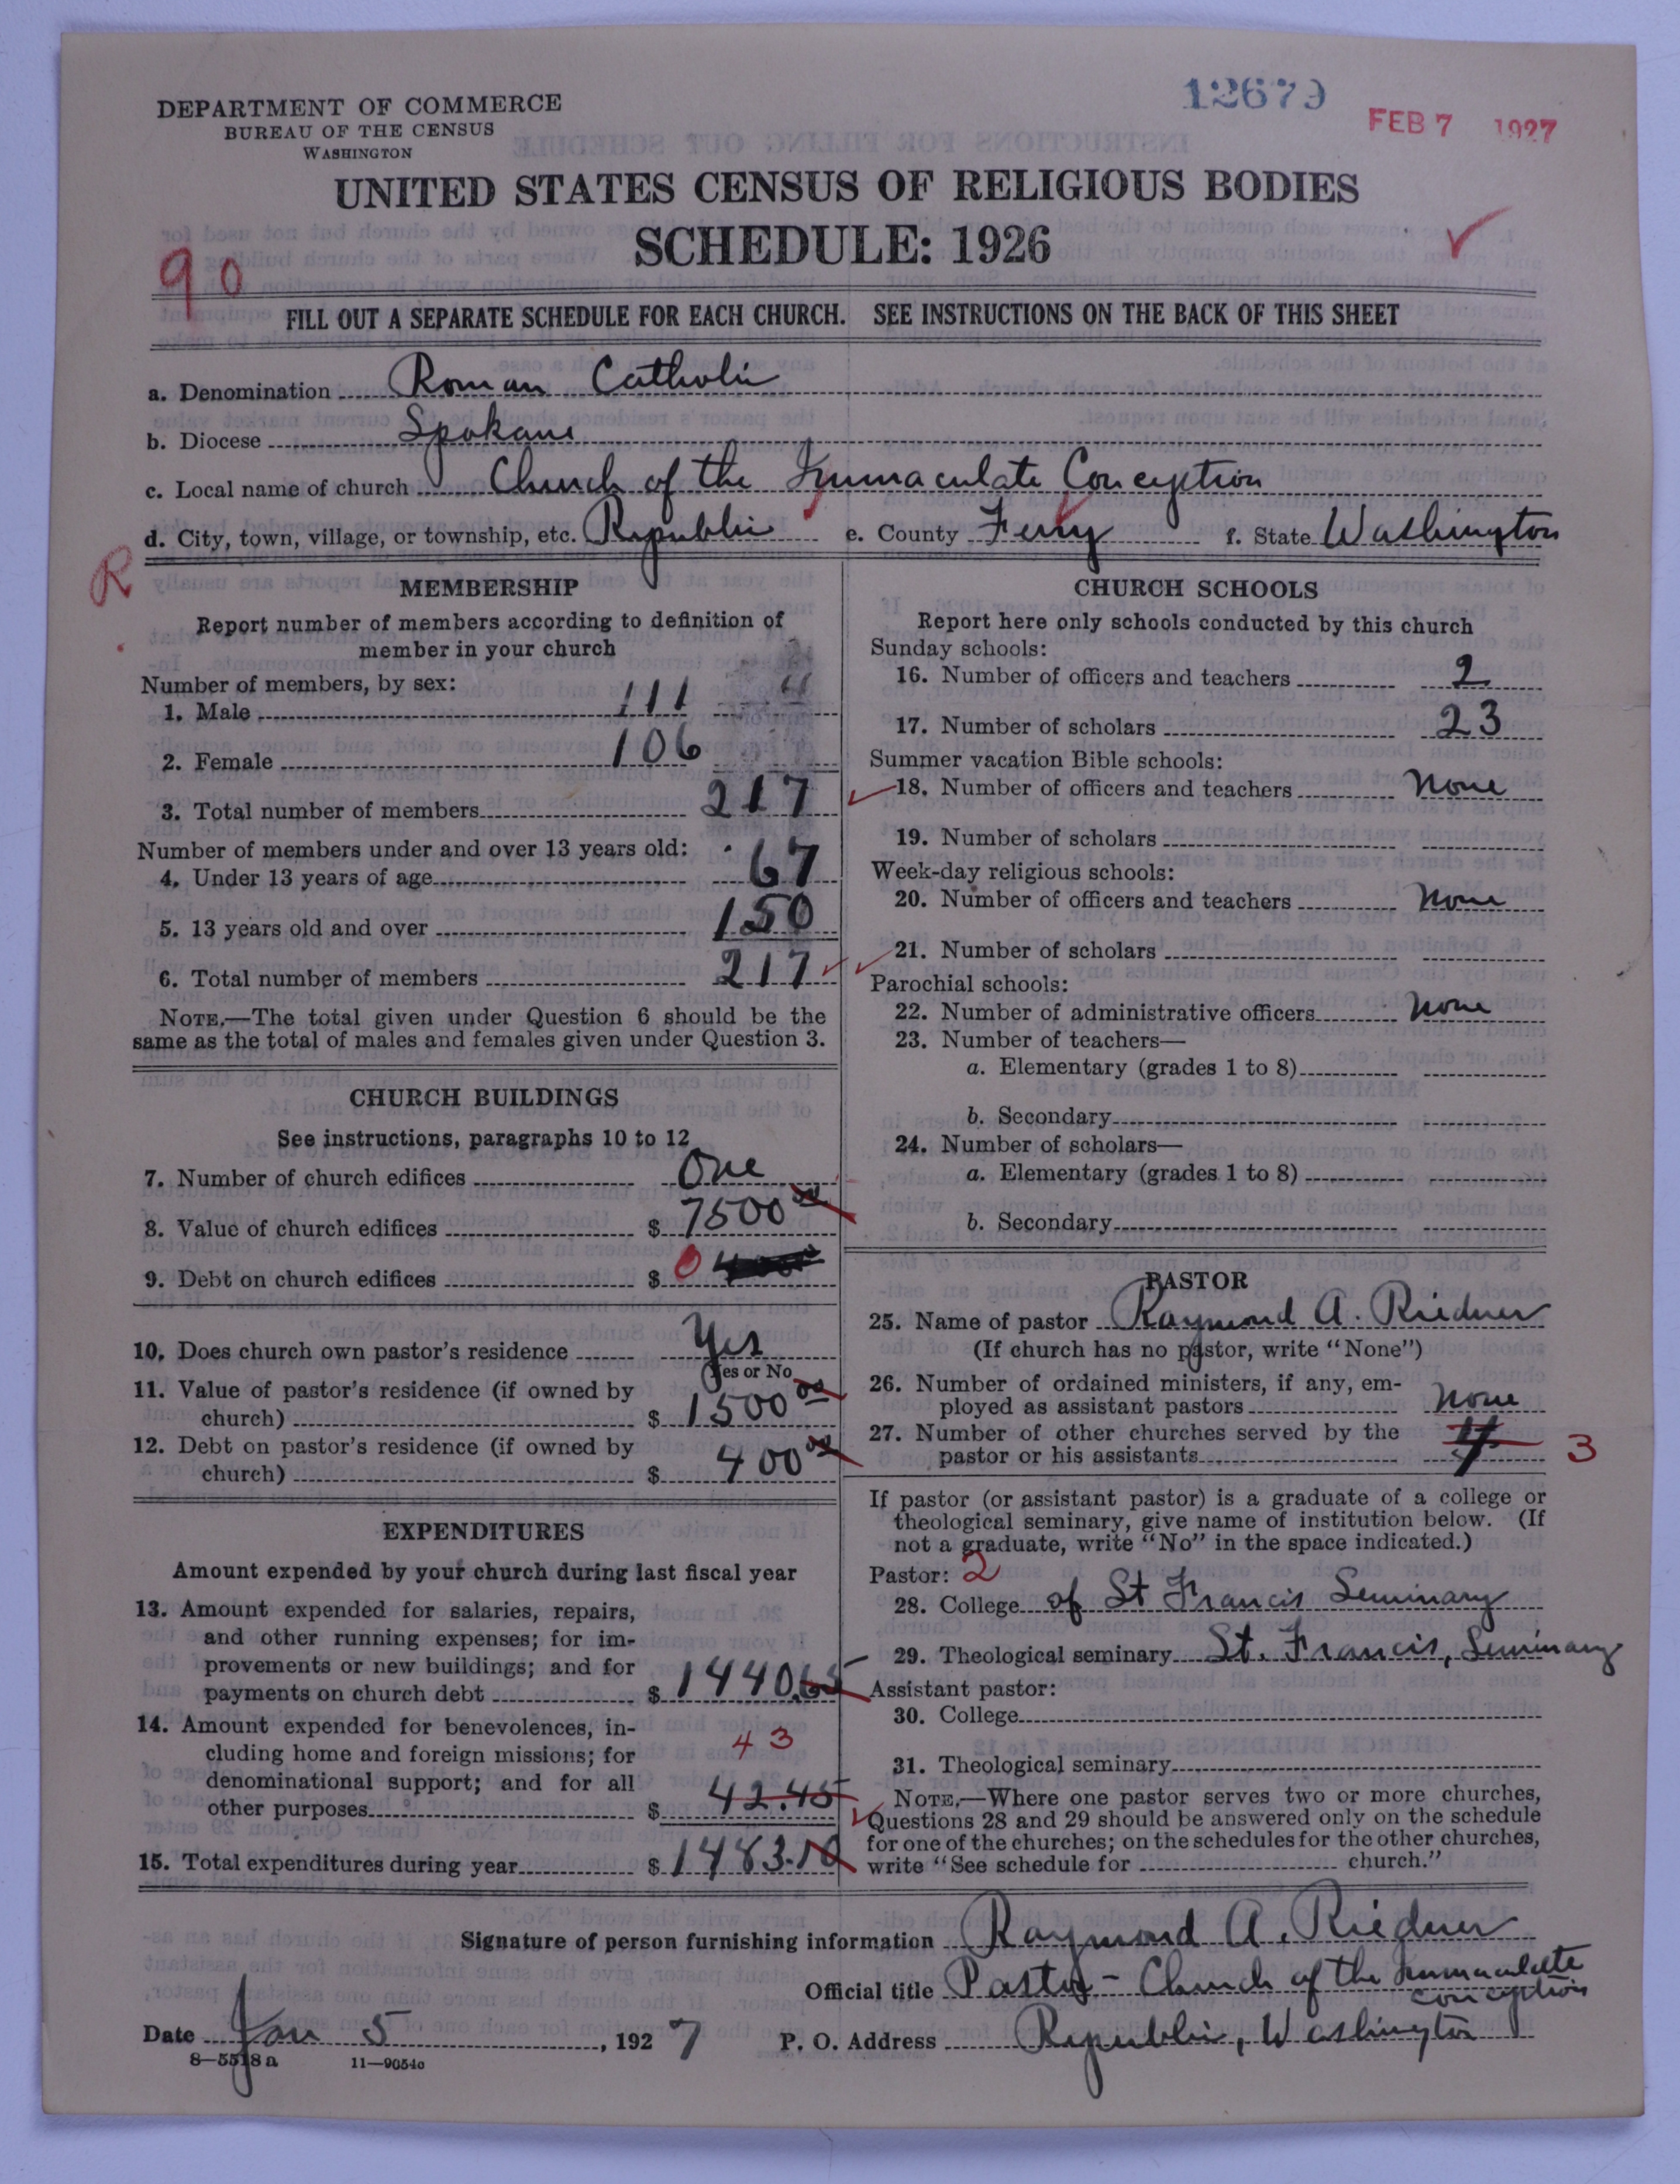 12679
FEB 7 1927
DEPARTMENT OF COMMERCE
BUREAU OF THE CENSUS
WASHINGTON
UNITED STATES CENSUS OF RELIGIOUS BODIES
SCHEDULE: 1926
90
FILL OUT A SEPARATE SCHEDULE FOR EACH CHURCH. SEE INSTRUCTIONS ON THE BACK OF THIS SHEET
a. Denomination Roman Catholic
b. Diocese Spokane
c. Local name of church Church of the Immaculate Conception
d. City, town, village, or township, etc. Republic e. County Ferry f. State Washington
R
MEMBERSHIP
Report number of members according to definition of
member in your church
Number of members, by sex:
1. Male 111
2. Female 106
3. Total number of members 217
Number of members under and over 13 years old:
4. Under 13 years of age 67
5. 13 years old and over 150
6. Total number of members 217
NOTE.—The total given under Question 6 should be the
same as the total of males and females given under Question 3.
CHURCH BUILDINGS
See instructions, paragraphs 10 to 12
7. Number of church edifices One
8. Value of church edifices $ 7500 00
9. Debt on church edifices $ 0
10. Does church own pastor's residence Yes
Yes or No
11. Value of pastor's residence (if owned by
church) $ 1500 00
12. Debt on pastor's residence (if owned by
church) $ 400 00
EXPENDITURES
Amount expended by your church during last fiscal year
13. Amount expended for salaries, repairs,
and other running expenses; for im-
provements or new buildings; and for
payments on church debt $ 1440.65
14. Amount expended for benevolences, in-
cluding home and foreign missions; for
denominational support; and for all
43
other purposes $ 42.45
15. Total expenditures during year $ 1483.10
CHURCH SCHOOLS
Report here only schools conducted by this church
Sunday schools:
16. Number of officers and teachers 2
17. Number of scholars 23
Summer vacation Bible schools:
18. Number of officers and teachers none
19. Number of scholars
Week-day religious schools:
20. Number of officers and teachers none
21. Number of scholars
Parochial schools:
22. Number of administrative officers none
23. Number of teachers—
a. Elementary (grades 1 to 8)
b. Secondary
24. Number of scholars—
a. Elementary (grades 1 to 8)
b. Secondary
PASTOR
25. Name of pastor Raymond A. Riedner
(If church has no pastor, write "None")
26. Number of ordained ministers, if any, em-
ployed as assistant pastors none
27. Number of other churches served by the
pastor or his assistants 4 3
If pastor (or assistant pastor) is a graduate of a college or
theological seminary, give name of institution below. (If
not a graduate, write "No" in the space indicated.)
Pastor: 2
28. College of St Francis Seminary
29. Theological seminary St. Francis, Seminary
Assistant pastor:
30. College
31. Theological seminary
NOTE.—Where one pastor serves two or more churches,
Questions 28 and 29 should be answered only on the schedule
for one of the churches; on the schedules for the other churches,
write "See schedule for church."
Signature of person furnishing information Raymond A. Riedner
Official title Pastor - Church of the Immaculate
Conception
Date Jan 5, 1927 P. O. Address Republic, Washington
8—5518a 11—9054c